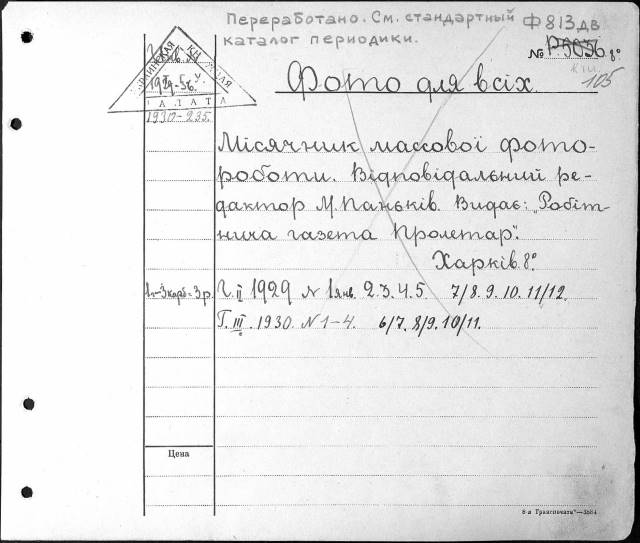 Переработано. См. стандартный Ф 813 дв
каталог периодики.
№ Р5056 8°
105
КН
1929-56.
ПАЛАТА
1930-235.
Фото для всіх.
Місячник массової фото-
роботи. Відповідальний ре-
дактор М. Паньків. Видає: „Робіт-
нича газета Пролетар".
Харків. 8°.
Г. II 1929 № 1 янв. 2.3.4.5. 7/8. 9. 10. 11/12.
Г. III. 1930. № 1-4. 6/7. 8/9. 10/11.
Цена
8-я Транспечать"—3884